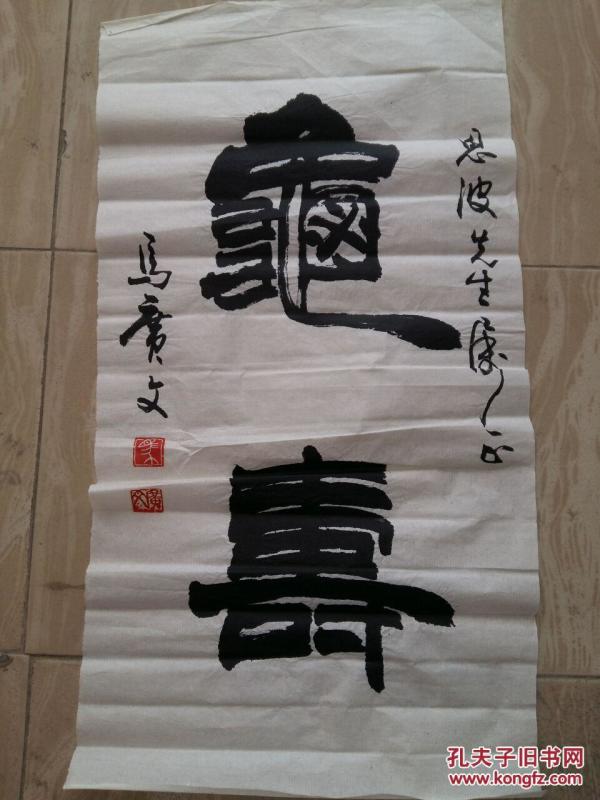 思波先生属正
龜壽
馬廣文
孔夫子旧书网
www.kongfz.com